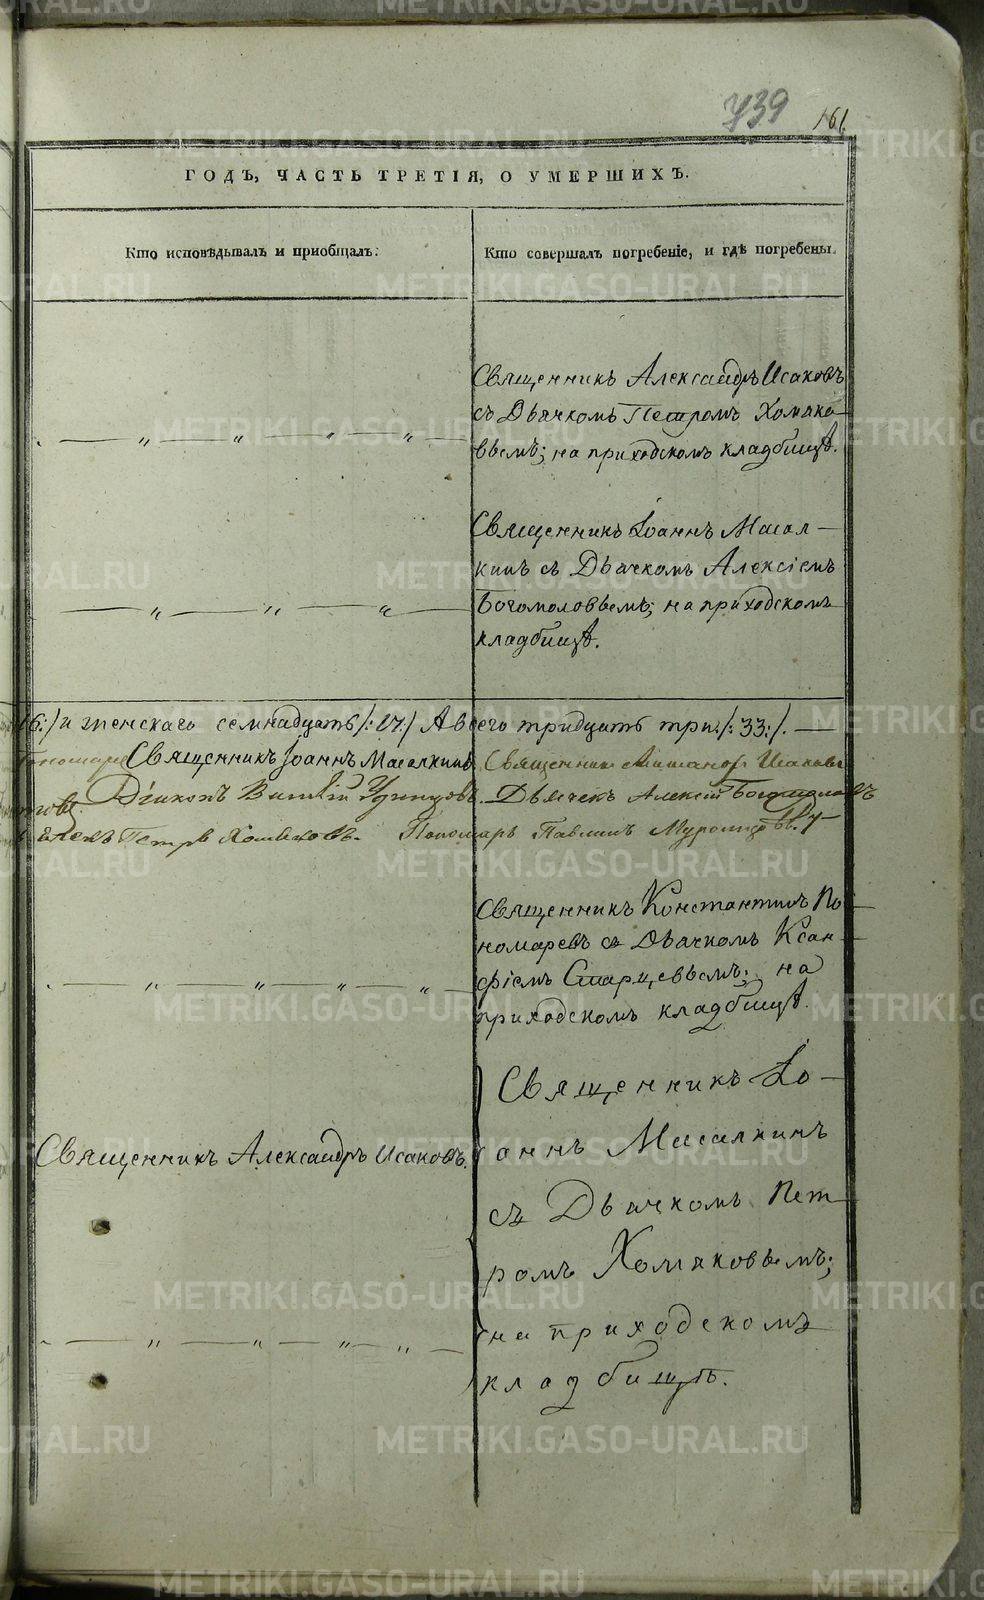 739
161.
ГОДЪ, ЧАСТЬ ТРЕТІЯ, О УМЕРШИХЪ.
Кто исповѣдывалъ и пріобщалъ:
Кто совершалъ погребеніе, и гдѣ погребены.
Священникъ Александръ Исаковъ
съ Дьячкомъ Петромъ Хомяко—
вымъ; на приходскомъ кладбищѣ.
Священникъ Іоаннъ Масал—
кинъ съ Дьячкомъ Алексіемъ
Богомоловымъ; на приходскомъ
кладбищѣ.
16:/ и женскаго семнадцать /:17:/ А всего тридцать три /:33:/. —
Священникъ Іоаннъ Масалкинъ. Священникъ Исаковъ
Діаконъ Дьячекъ Алексѣй Богомоловъ
Петръ Хомяковъ. Пономарь Павлинъ
Священникъ Константинъ По—
номаревъ съ Дьячкомъ Ксан—
фіемъ Старцевымъ; на
приходскомъ кладбищѣ.
Священникъ Александръ Исаковъ.
Священникъ Іо—
аннъ Масалкинъ
съ Дьячкомъ Пет—
ромъ Хомяковымъ;
на приходскомъ
кладбищѣ.
METRIKI.GASO-URAL.RU